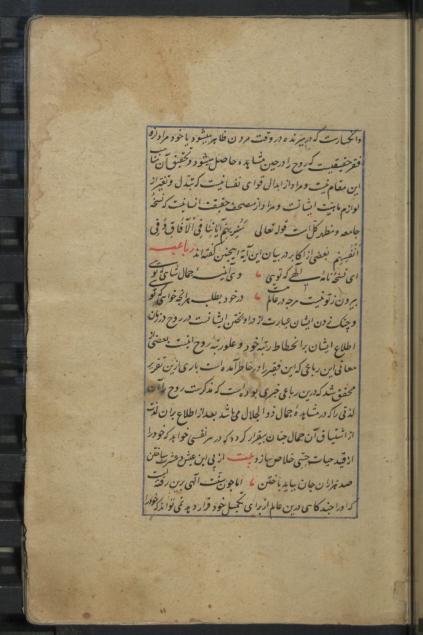 و انکسارست که در بیرنده در وقت مردن ظاهر میشود یا خود مراد از و
فقر حقیقیست که روح را در حین مشاهده حاصل میشود و تحقیق آن مناسب
این مقام نیست و مراد از ابدال قوای نفسانیست که تبدل و تغیر از
لوازم ماهیت ایشانست و مراد از مصحف حقیقت انسانیت که نسخهٔ
جامعه و مظهر کل است قوله تعالی سَنُرِیهِم آیاتِنا فِی الْآفاقِ وَ فِی
أَنْفُسِهِم بعضی از اکابر در بیان این آیه اینچنین گفته‌اند رباعیه
ای نسخهٔ نامهٔ الهی که توی وی آینهٔ جمال شاهی که توی
بیرون ز تو نیست هرچه در عالم هست در خود بطلب هر آنچه خواهی که توی
و چنک زدن ایشان عبارت از در آویختن ایشانست در روح در زمان
اطلاع ایشان بر انحطاط رتبهٔ خود و علو رتبهٔ روح اینست بعضی از
معانی این رباعی که این فقیر را در خاطر آمده است باری ازین تقریر
محقق شد که درین رباعی خبری بوده است که مذکرست روح را آن
لذتی را که در مشاهدهٔ جمال ذوالجلال می‌باشد بعد از اطلاع بران لذت
از اشتیاق آن جمال چنان بیقرار کردد که در هر نفسی خواهد که خود را
از قید حیات جسی خلاص سازد بیت از پی این عیش و عشرت ساختن
صد هزاران جان بباید باختن اما چون سنت الهی برین رفته است
که او را چند کاهی درین عالم از برای تکمیل خود قرار دهد نمی‌تواند که خود را